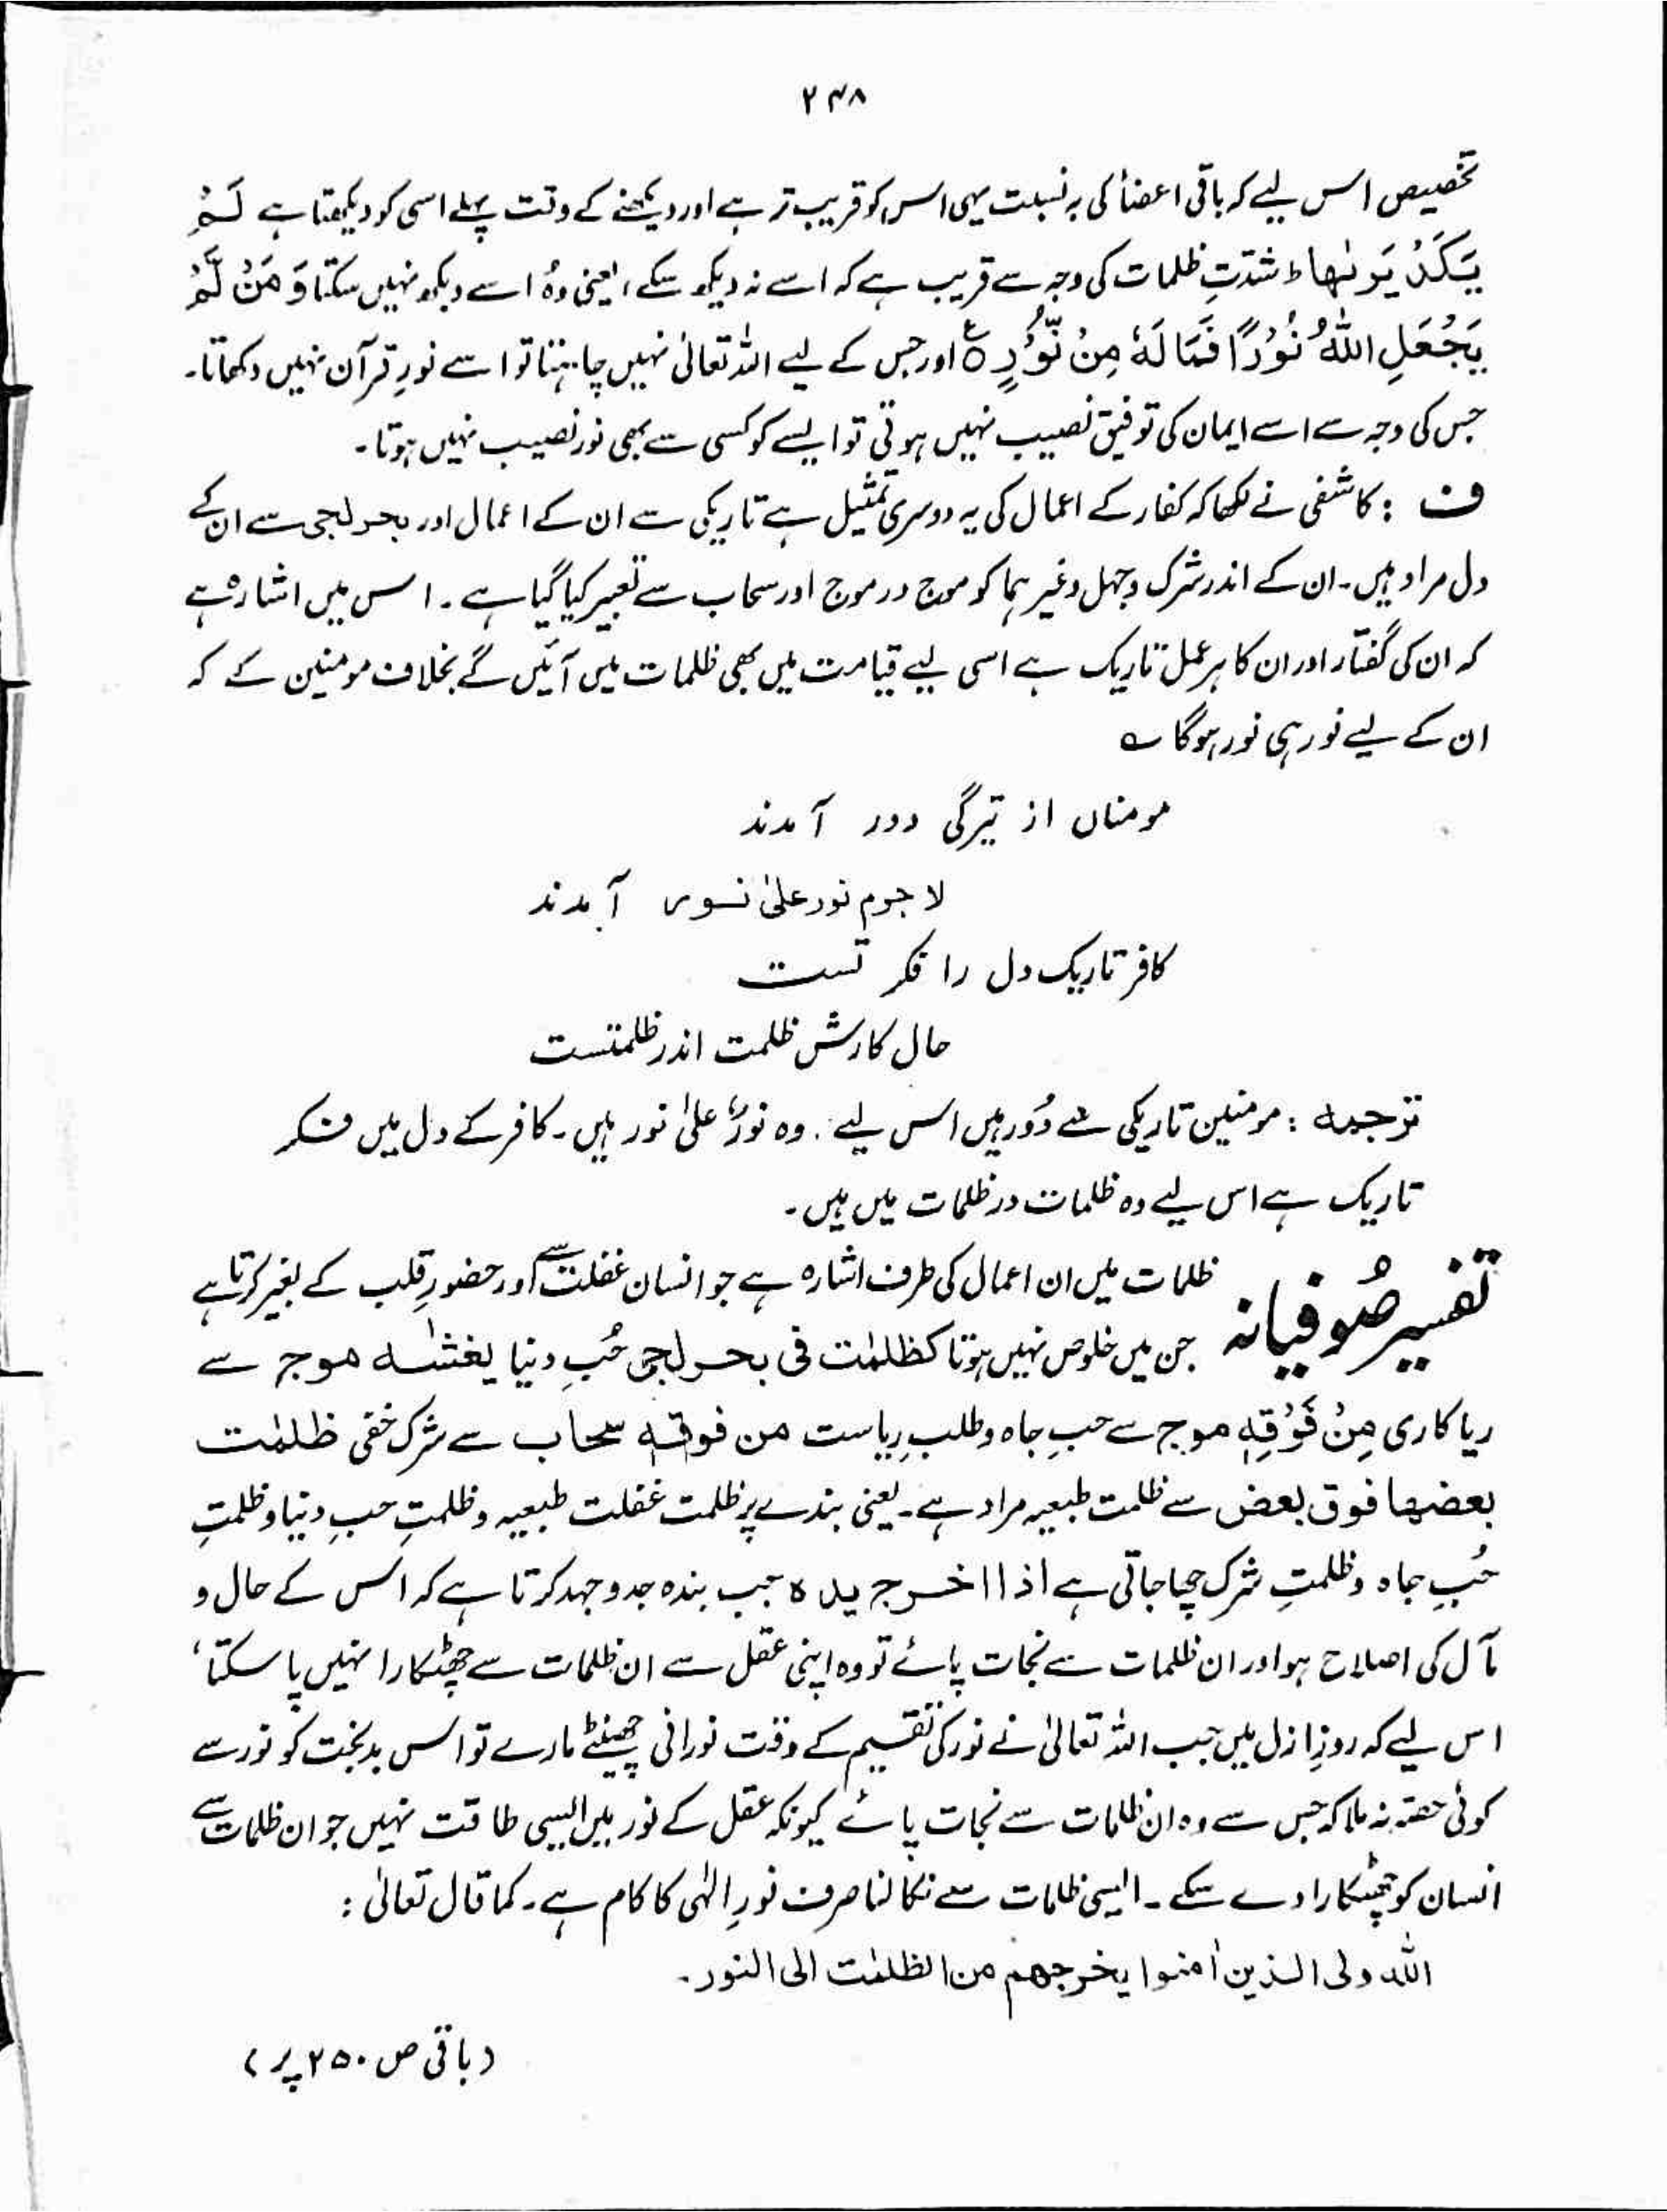 ۲۴۸
تخصیص اس لیے کہ باقی اعضأ کی بہ نسبت یہی اس کو قریب تر ہے اور دیکھنے کے وقت پہلے اسی کو دیکھتا ہے لَمْ
یَکَدْ یَرٰىهَا ط شدّتِ ظلمات کی وجہ سے قریب ہے کہ اسے نہ دیکھ سکے، یعنی وہُ اسے دیکھ نہیں سکتا وَ مَنْ لَّمْ
یَجْعَلِ اللهُ لَهٗ نُوْرًا فَمَا لَهٗ مِنْ نُّوْرٍ ۝ع اور جس کے لیے اللہ تعالیٰ نہیں چاہتا تو اسے نورِ قرآن نہیں دکھاتا۔
جس کی وجہ سے اسے ایمان کی توفیق نصیب نہیں ہوتی تو ایسے کو کسی سے بھی نور نصیب نہیں ہوتا۔
ف : کاشفی نے لکھا کہ کفار کے اعمال کی یہ دوسری تمثیل ہے تاریکی سے ان کے اعمال اور بحر لجی سے ان کے
دل مراد ہیں۔ ان کے اندر شرک وجہل وغیر ہما کو موج در موج اور سحاب سے تعبیر کیا گیا ہے۔ اس میں اشارہ ہے
کہ ان کی گفتار اور ان کا ہر عمل تاریک ہے اسی لیے قیامت میں بھی ظلمات میں آئیں گے بخلاف مومنین کے کہ
ان کے لیے نور ہی نور ہوگا ؎
مومناں از تیرگی دور آمدند
لا جرم نور علیٰ نور آمدند
کافر تاریک دل را فکر تست
حال کارش ظلمت اندر ظلمتست
ترجمہ : مومنین تاریکی سے دُور ہیں اس لیے وہ نورٌ علیٰ نور ہیں۔ کافر کے دل میں فکر
تاریک ہے اس لیے وہ ظلمات در ظلمات میں ہیں۔
تفسیر صُوفیانہ ظلمات میں ان اعمال کی طرف اشارہ ہے جو انسان غفلت سے اور حضورِ قلب کے بغیر کرتا ہے
جن میں خلوص نہیں ہوتا کظلمٰت فی بحر لجی حُبِ دنیا یغشٰىه موج سے
ریا کاری مِنْ فَوْقِهٖ موج سے حبِ جاہ و طلبِ ریاست من فوقہٖ سحاب سے شرک خفی ظلمٰت
بعضها فوق بعض سے ظلمت طبعیہ مراد ہے۔ یعنی بندے پر ظلمت غفلت طبعیہ و ظلمتِ حبِ دنیا و ظلمتِ
حُبِ جاہ و ظلمتِ شرک چھا جاتی ہے اذا اخرج یدہ جب بندہ جدوجہد کرتا ہے کہ اس کے حال و
مآل کی اصلاح ہو اور ان ظلمات سے نجات پائے تو وہ اپنی عقل سے ان ظلمات سے چھٹکارا نہیں پا سکتا،
اس لیے کہ روزِ ازل میں جب اللہ تعالیٰ نے نور کی تقسیم کے وقت نورانی چھینٹے مارے تو اس بدبخت کو نور سے
کوئی حصّہ نہ ملا کہ جس سے وہ ان ظلمات سے نجات پائے کیونکہ عقل کے نور میں ایسی طاقت نہیں جو ان ظلمات سے
انسان کو چھٹکارا دے سکے۔ ایسی ظلمات سے نکالنا صرف نورِ الٰہی کا کام ہے۔ کما قال تعالیٰ :
الله ولی الذین اٰمنوا یخرجهم من الظلمٰت الی النور۔
(باقی ص ۲۵۰ پر)